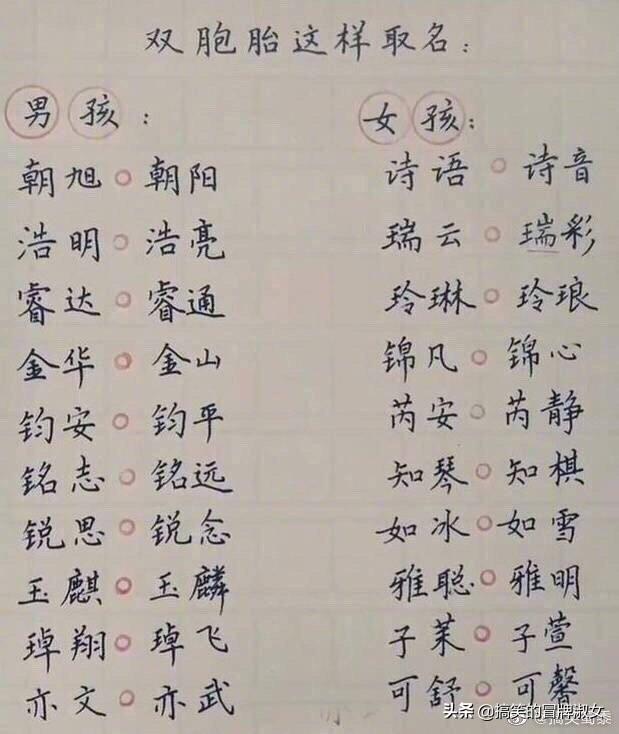 双胞胎这样取名：
男孩：
朝旭。朝阳
浩明。浩亮
睿达。睿通
金华。金山
钧安。钧平
铭志。铭远
锐思。锐念
玉麒。玉麟
琸翔。琸飞
亦文。亦武
女孩：
诗语。诗音
瑞云。瑞彩
玲琳。玲琅
锦凡。锦心
芮安。芮静
知琴。知棋
如冰。如雪
雅聪。雅明
子茉。子萱
可舒。可馨
头条 @搞笑的冒牌淑女